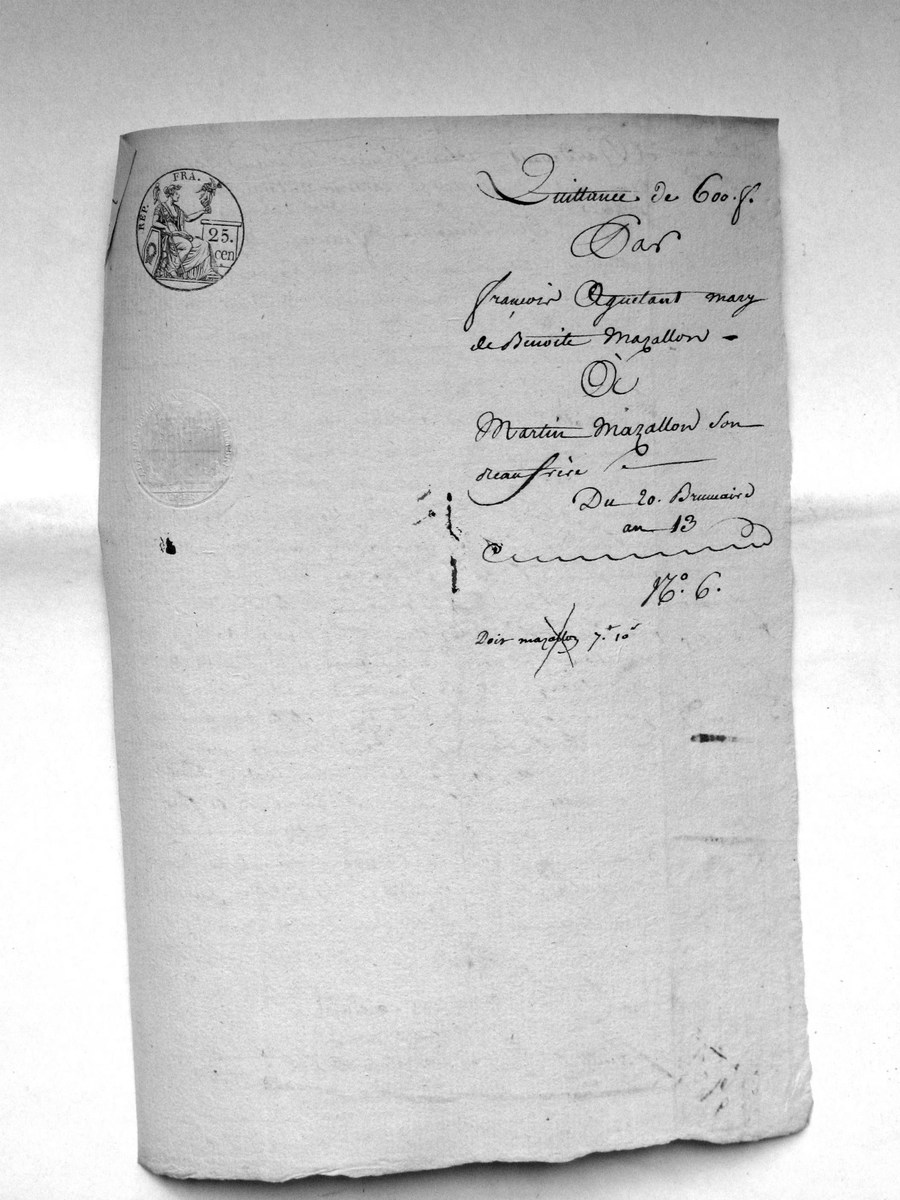 RÉP. FRA.
25.
cen
Quittance de 600.f.
Par
françois Aguetant mary
de Benoite Mazallon -
À
Martin Mazallon Son
Beaufrère
Du 20. Brumaire
an 13
N.o 6.
Doit mazallon 7.t 10s